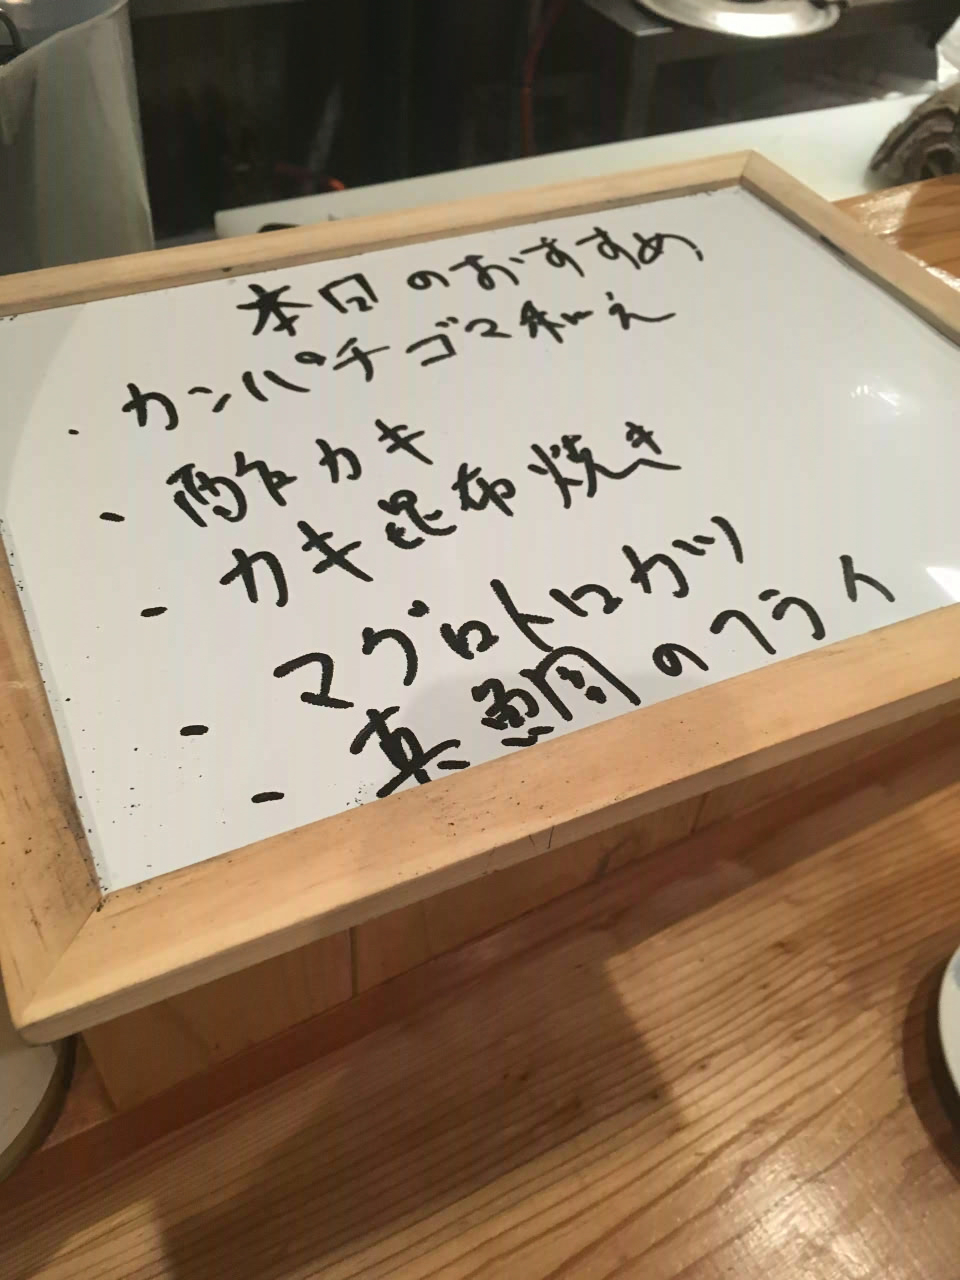 本日のおすすめ
・カンパチゴマ和え
・酢カキ
・カキ昆布焼き
・マグロトロカツ
・真鯛のフライ